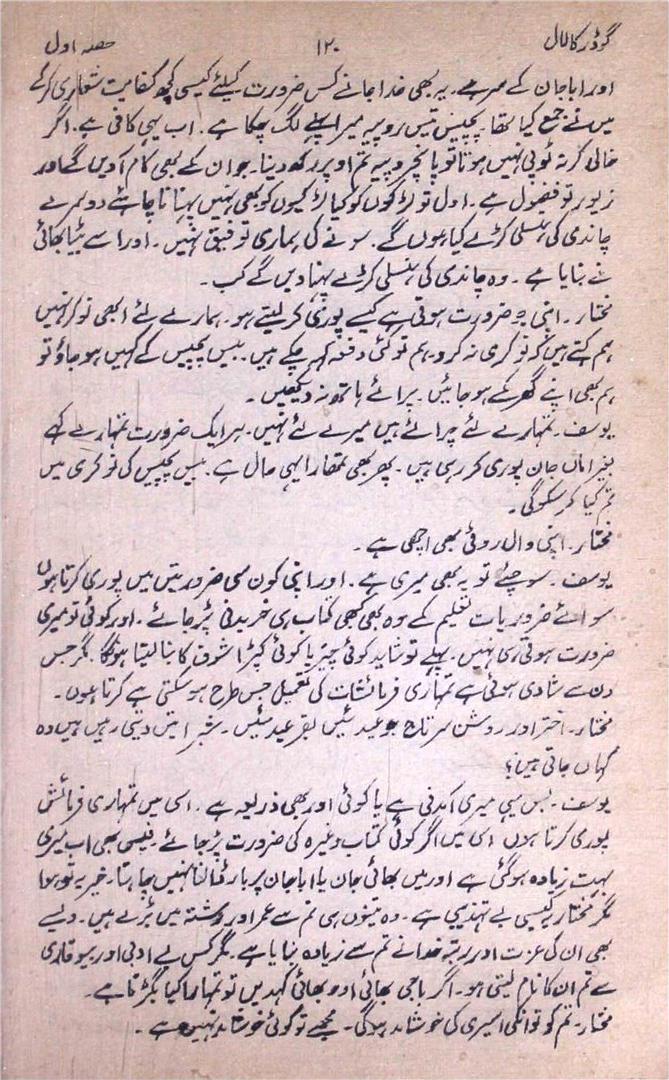 گودڑ کا لال ۱۲۰ حصہ اول
اور اباجان کے سر ہے۔ یہ بھی خدا جانے کس ضرورت کیلئے کیسی کچھ کفایت شعاری کرکے
میں نے جمع کیا تھا۔ پچیس تیس روپیہ میرا پہلے لگ چکا ہے۔ اب یہی کافی ہے۔ اگر
خالی کرتہ ٹوپی نہیں ہوتا تو پانچروپیہ تم اوپر رکھ دینا۔ جو ان کے بھی کام آویں گے اور
زیور تو فضول ہے۔ اول تو لڑکوں کو کیا لڑکیوں کو بھی نہیں پہنانا چاہئے دوسرے
چاندی کی ہنسلی کڑے کیا ہوں گے۔ سونے کی ہماری توفیق نہیں۔ اور اسے بیٹا بھائی
نے بنایا ہے۔ وہ چاندی کی ہنسلی کڑے پہنا دیں گے کب۔
مختار۔ اپنی جو ضرورت ہوتی ہے کیسے پوری کر لیتے ہو۔ ہمارے لئے ابھی نوکر نہیں
ہم کہتے ہیں کہ نوکری نہ کرو۔ ہم تو کئی دفعہ کہہ چکے ہیں۔ بیس پچیس کے کہیں ہو جاؤ تو
ہم بھی اپنے گھر کے ہو جائیں۔ پرائے ہاتھ نہ دیکھیں۔
یوسف۔ تمہارے لئے پرائے ہیں میرے لئے نہیں۔ ہر ایک ضرورت تمہارے کہے
بغیر اماں جان پوری کر رہی ہیں۔ پھر بھی تمھارا یہی حال ہے۔ بیس پچیس کی نوکری میں
تم کیا کر سکو گی۔
مختار۔ اپنی دال روٹی بھی اچھی ہے۔
یوسف۔ سوچئے تو یہ بھی میری ہے۔ اور اپنی کون سی ضرورتیں میں پوری کرتا ہوں
سوائے ضروریات تعلیم کے وہ بھی کبھی کتاب ہی خریدنی پڑ جائے۔ اور کوئی تو میری
ضرورت ہوتی ہی نہیں۔ پہلے تو شاید کوئی چیز یا کوئی کپڑا شوق کا بنا لیتا ہونگا۔ مگر جس
دن سے شادی ہوئی ہے تمہاری فرمائشات کی تعمیل جس طرح ہو سکتی ہے کرتا ہوں۔
مختار۔ اختر اور روشن سرتاج جو عید بقر عید دیتی رہیں ہیں وہ
کہاں جاتی ہیں؟
یوسف۔ بس یہی میری آمدنی ہے یا کوئی اور بھی ذریعہ ہے۔ اسی میں تمہاری فرمائش
پوری کرتا ہوں اسی میں اگر کوئی کتاب وغیرہ کی ضرورت پڑ جائے۔ فیس بھی اب میری
بہت زیادہ ہو گئی ہے اور میں بھائی جان یا اباجان پر بار ڈالنا نہیں چاہتا۔ خیر یہ تو ہوا
مگر مختار یہ کیسی بے تہذیبی ہے۔ وہ تینوں ہی تم سے عمر اور رشتہ میں بڑے ہیں۔ ویسے
بھی ان کی عزت اور رتبہ خدا نے تم سے زیادہ بنایا ہے۔ مگر کس بے ادبی اور بیوقاری
سے تم ان کا نام لیتی ہو۔ اگر باجی بھائی اور بھائی کہدیں تو تمہارا کیا بگڑتا ہے۔
مختار۔ تم کو تو انکی امیری کی خوشامد ہوگی۔ مجھے تو کوئی خوشامد نہیں ہے۔